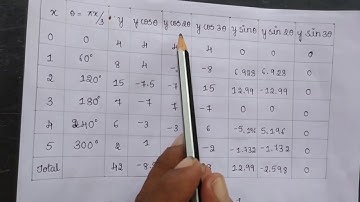 x θ = πx/3 y y cosθ y cos2θ y cos3θ y sinθ y sin2θ y sin3θ
0 0 4 4 4 0 0 0
1 60° 8 4 -8 6.928 6.928 0
2 120° 15 -7.5 15 12.99 -12.99 0
3 180° 7 -7 -7 0 0 0
4 240° 6 -3 6 -5.196 5.196 0
5 300° 2 1 -2 -1.732 -1.732 0
Total 42 -8. 12.99 -2.598 0